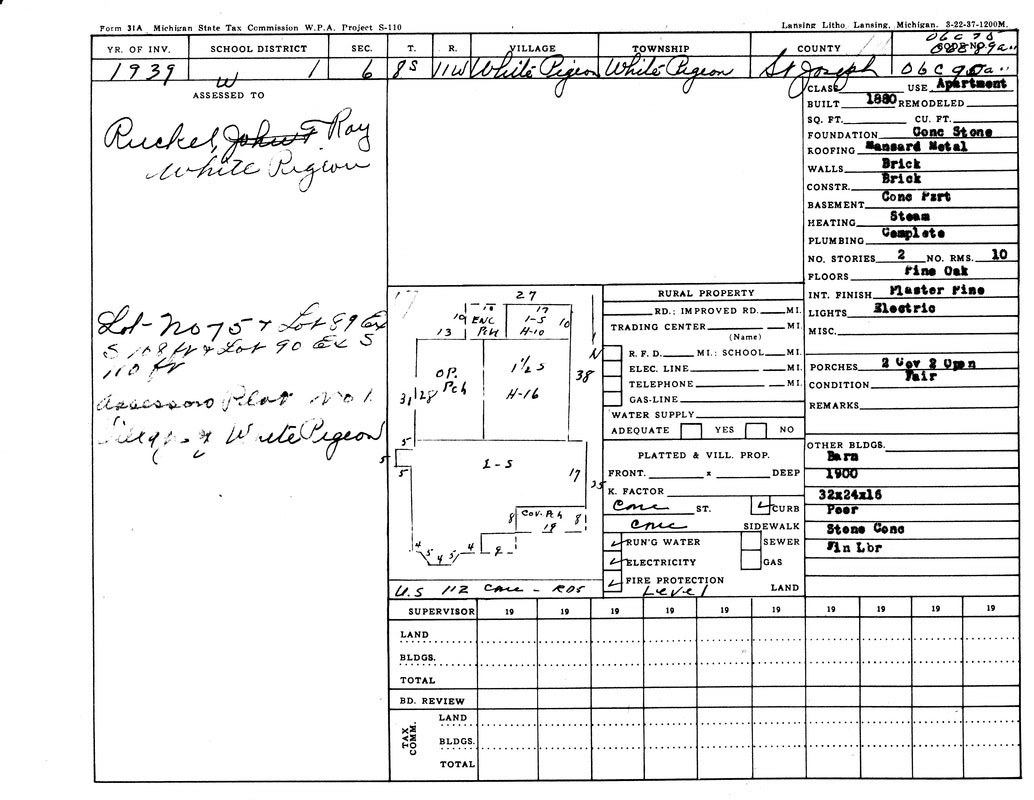 Form 31A Michigan State Tax Commission W.P.A. Project S-110
Lansing Litho. Lansing, Michigan. 3-22-37-1200M.
YR. OF INV. SCHOOL DISTRICT SEC. T. R. VILLAGE TOWNSHIP COUNTY CODE NO.
06C75
06C89a"
1939 W 1 6 8S 11W White Pigeon White Pigeon St Joseph 06C90a"
ASSESSED TO
Ruckel, John F Roy
White Pigeon
Lot - No 75 & Lot 89 Ex
S 108 ft & Lot 90 Ex S
110 ft
Assessors Plat No 1
Village of White Pigeon
CLASS USE Apartment
BUILT 1880 REMODELED
SQ. FT. CU. FT.
FOUNDATION Conc Stone
ROOFING Mansard Metal
WALLS Brick
CONSTR. Brick
BASEMENT Conc Part
HEATING Steam
PLUMBING Complete
NO. STORIES 2 NO. RMS. 10
FLOORS Pine Oak
INT. FINISH Plaster Pine
LIGHTS Electric
MISC.
PORCHES 2 Cov 2 Opn
CONDITION Fair
REMARKS
OTHER BLDGS.
Barn
1900
32x24x16
Poor
Stone Conc
Fin Lbr
17 27
10 ENC 17 1-S 10
13 Pch H-10
N
OP. Pch 1½ S 38
31 28 H-16
5
5
5
2-S 17
35
8 Cov. Pch 8
19
4 5 4 5 4 9
U.S 112 Conc - RDS
RURAL PROPERTY
RD.: IMPROVED RD. MI.
TRADING CENTER MI.
(Name)
R. F. D. MI.: SCHOOL MI.
ELEC. LINE MI.
TELEPHONE MI.
GAS-LINE
WATER SUPPLY
ADEQUATE YES NO
PLATTED & VILL. PROP.
FRONT. x DEEP
K. FACTOR
Conc ST. CURB
Conc SIDEWALK
RUN'G WATER SEWER
ELECTRICITY GAS
FIRE PROTECTION
Level LAND
SUPERVISOR 19 19 19 19 19 19 19 19 19 19
LAND
BLDGS.
TOTAL
BD. REVIEW
TAX COMM.
LAND
BLDGS.
TOTAL